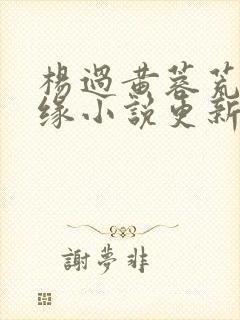 楊過黃蓉荒
緣小說更新
謝夢非